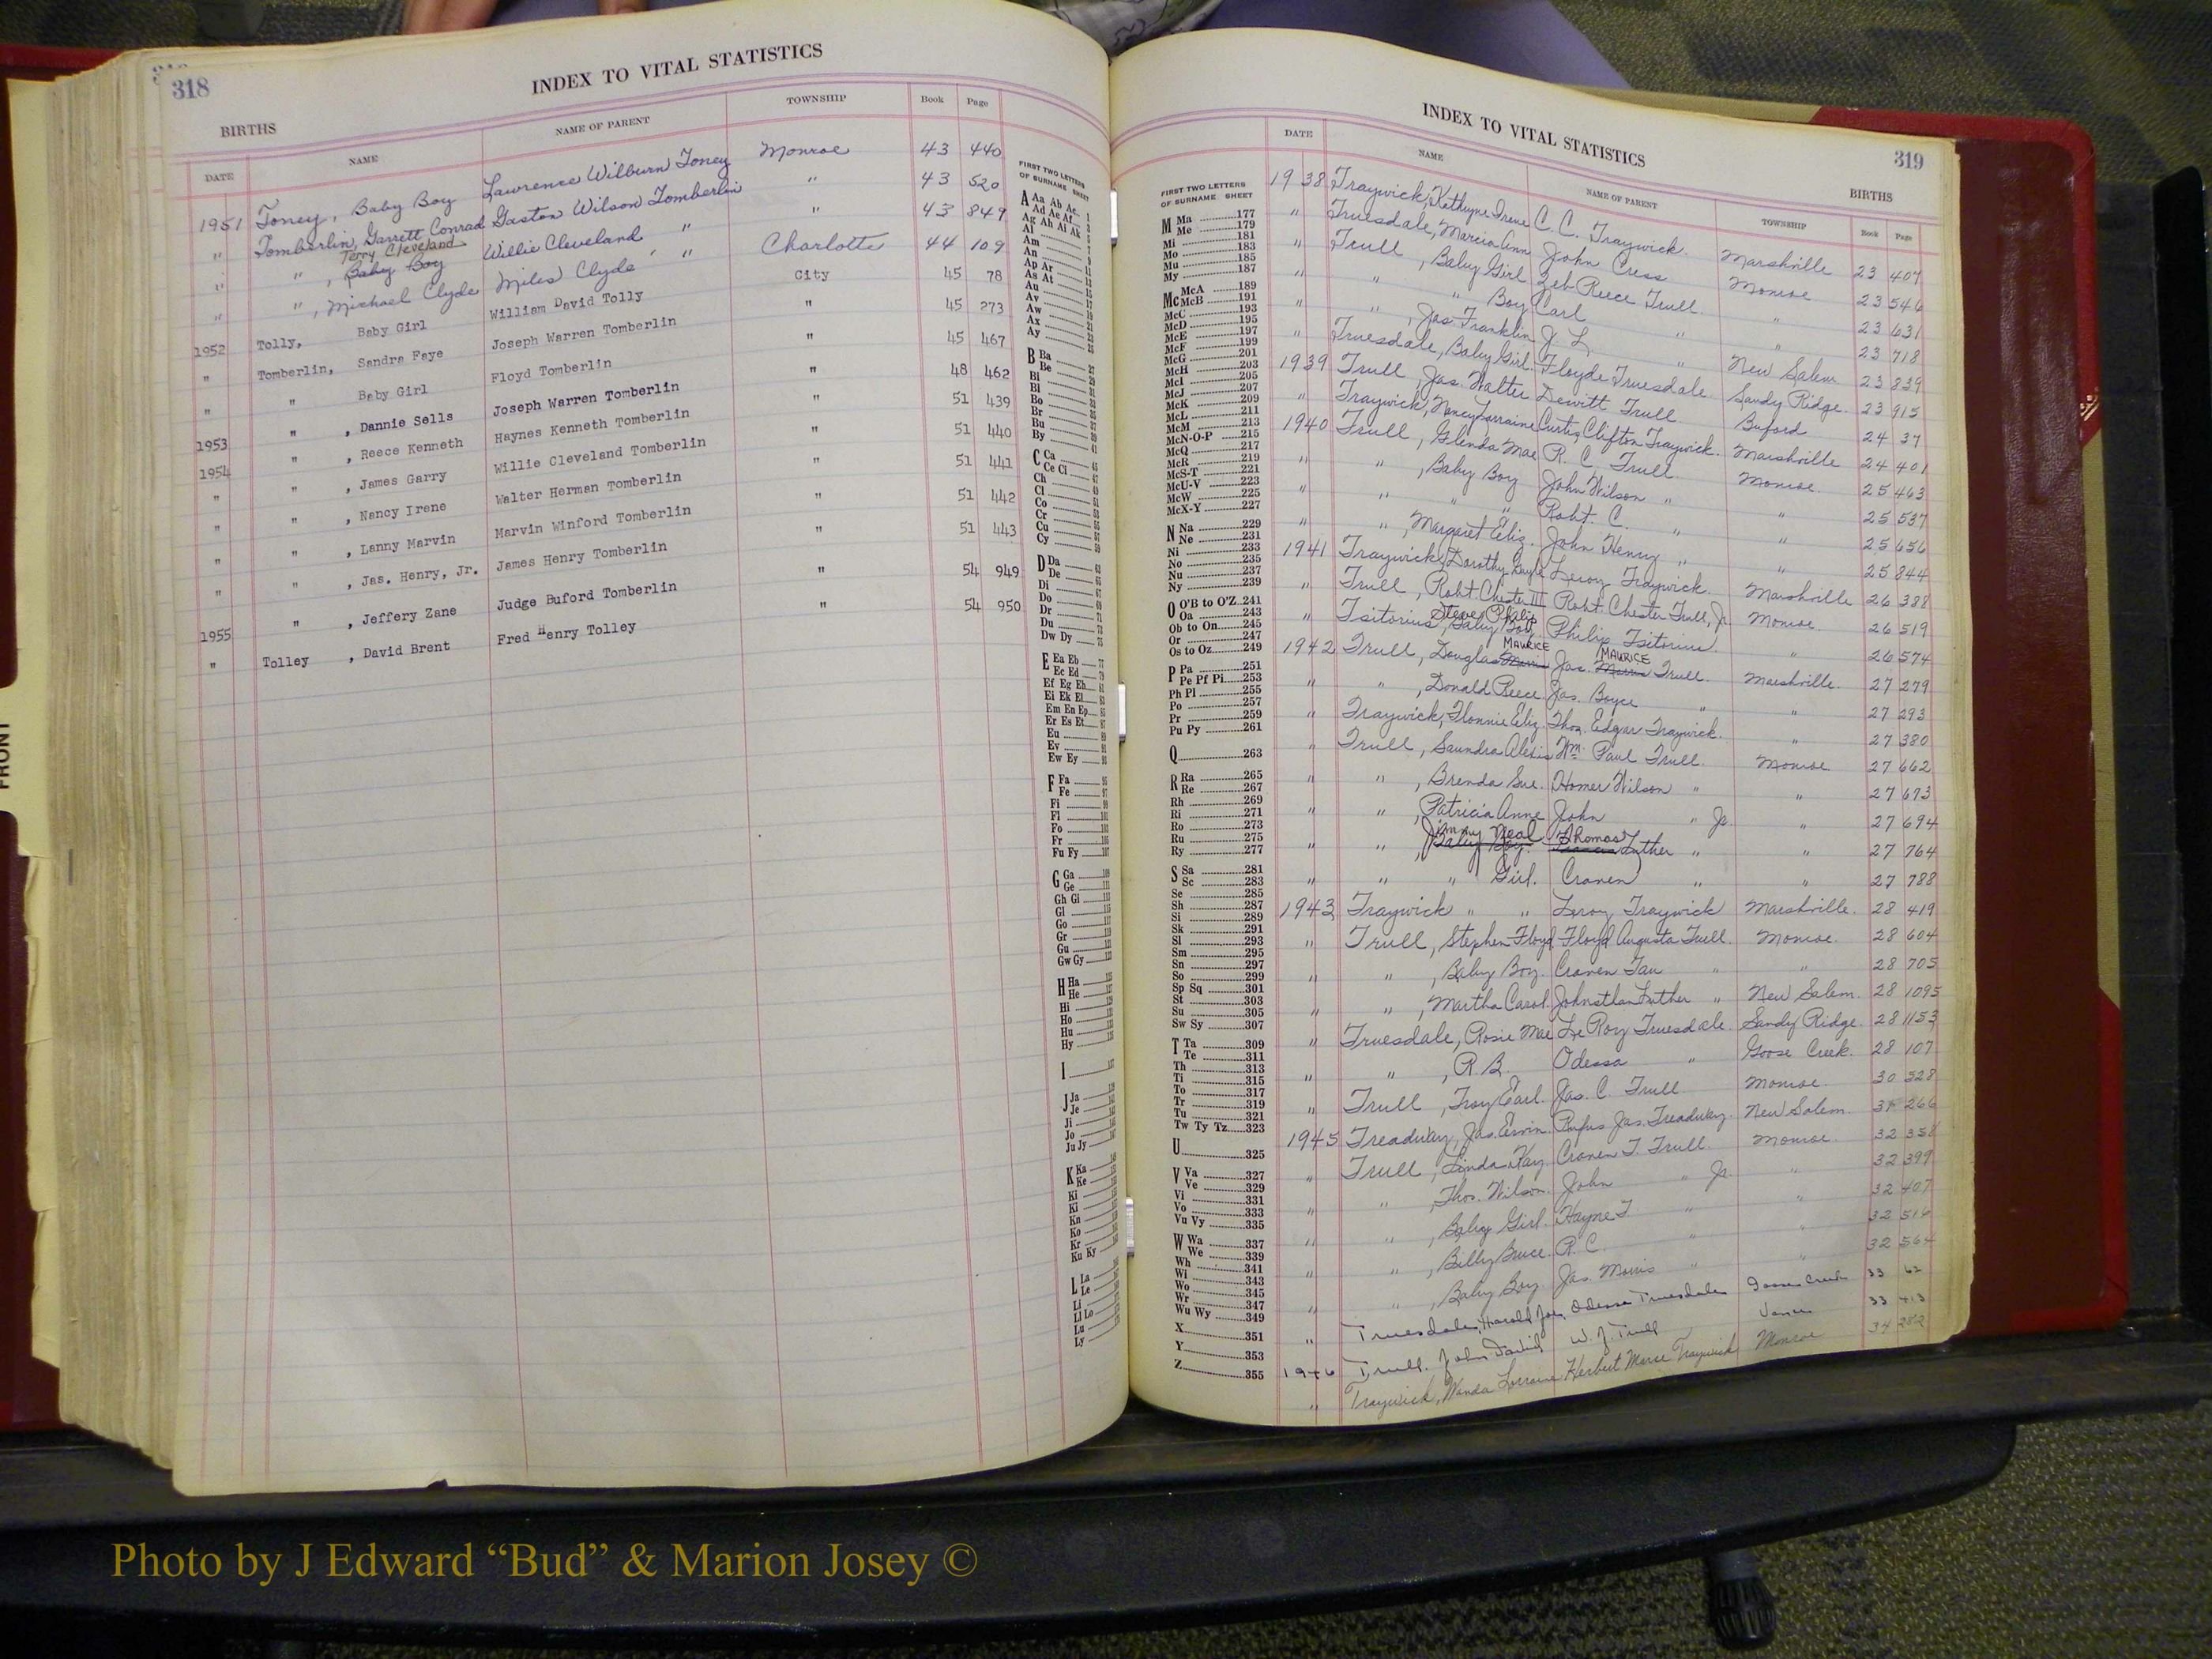 318
INDEX TO VITAL STATISTICS
BIRTHS
DATE NAME NAME OF PARENT TOWNSHIP Book Page
1951 Toney, Baby Boy Lawrence Wilburn Toney Monroe 43 440
" Tomberlin, Garrett Conrad Gaston Wilson Tomberlin " 43 520
Terry Cleveland
" " , Baby Boy Willie Cleveland " " 43 849
" " , Michael Clyde Miles Clyde " Charlotte 44 109
1952 Tolly, Baby Girl William David Tolly City 45 78
" Tomberlin, Sandra Faye Joseph Warren Tomberlin " 45 273
" " Baby Girl Floyd Tomberlin " 45 467
1953 " , Dannie Sells Joseph Warren Tomberlin " 48 462
1954 " , Reece Kenneth Haynes Kenneth Tomberlin " 51 439
" " , James Garry Willie Cleveland Tomberlin " 51 440
" " , Nancy Irene Walter Herman Tomberlin " 51 441
" " , Lanny Marvin Marvin Winford Tomberlin " 51 442
" " , Jas. Henry, Jr. James Henry Tomberlin " 51 443
1955 " , Jeffery Zane Judge Buford Tomberlin " 54 949
" Tolley , David Brent Fred Henry Tolley " 54 950
FIRST TWO LETTERS
OF SURNAME SHEET
A Aa Ab Ac
Ad Ae Af
Ag Ah Ai Ak
Al
Am
An
Ap Ar
As At
Au
Av
Aw
Ax
Ay
B Ba
Be
Bi
Bl
Bo
Br
Bu
By
C Ca
Ce Ci
Ch
Cl
Co
Cr
Cu
Cy
D Da
De
Di
Do
Dr
Du
Dw Dy
E Ea Eb
Ec Ed
Ef Eg Eh
Ei Ek El
Em En Ep
Er Es Et
Eu
Ev
Ew Ey
F Fa
Fe
Fi
Fl
Fo
Fr
Fu Fy
G Ga
Ge
Gh Gi
Gl
Go
Gr
Gu
Gw Gy
H Ha
He
Hi
Ho
Hu
Hy
I
J Ja
Je
Ji
Jo
Ju Jy
K Ka
Ke
Ki
Kl
Kn
Ko
Kr
Ku Ky
L La
Le
Li
Ll Lo
Lu
Ly
INDEX TO VITAL STATISTICS
319
BIRTHS
FIRST TWO LETTERS
OF SURNAME SHEET
M Ma 177
Me 179
Mi 181
Mo 183
Mu 185
My 187
Mc McA 189
McB 191
McC 193
McD 195
McE 197
McF 199
McG 201
McH 203
McI 205
McJ 207
McK 209
McL 211
McM 213
McN-O-P 215
McQ 217
McR 219
McS-T 221
McU-V 223
McW 225
McX-Y 227
N Na 229
Ne 231
Ni 233
No 235
Nu 237
Ny 239
O O'B to O'Z 241
Oa 243
Ob to On 245
Or 247
Os to Oz 249
P Pa 251
Pe Pf Pi 253
Ph Pl 255
Po 257
Pr 259
Pu Py 261
Q 263
R Ra 265
Re 267
Rh 269
Ri 271
Ro 273
Ru 275
Ry 277
S Sa 281
Sc 283
Se 285
Sh 287
Si 289
Sk 291
Sl 293
Sm 295
Sn 297
So 299
Sp Sq 301
St 303
Su 305
Sw Sy 307
T Ta 309
Te 311
Th 313
Ti 315
To 317
Tr 319
Tu 321
Tw Ty Tz 323
U 325
V Va 327
Ve 329
Vi 331
Vo 333
Vu Vy 335
W Wa 337
We 339
Wh 341
Wi 343
Wo 345
Wr 347
Wu Wy 349
X 351
Y 353
Z 355
DATE NAME NAME OF PARENT TOWNSHIP Book Page
1938 Traywick, Kathyne Irene C. C. Traywick. Marshville 23 407
" Truesdale, Marcia Ann John Cress Monroe 23 546
" Trull, Baby Girl Zeb Reece Trull. " 23 631
" " " Boy Carl " " 23 718
" " , Jas. Franklin J. L. " New Salem 23 839
" Truesdale, Baby Girl. Floyde Truesdale. Sandy Ridge. 23 915
1939 Trull, Jas. Walter Dewitt Trull Buford 24 37
" Traywick, Nancy Lorraine Curtis Clifton Traywick. Marshville 24 401
1940 Trull, Glenda Mae R. C. Trull Monroe 25 463
" " , Baby Boy John Wilson " " 25 537
" " " " Robt. C. " " 25 656
" " , Margaret Eliz. John Henry " " 25 844
1941 Traywick, Dorothy Gayle Leroy Traywick. Marshville 26 388
" Trull, Robt. Chester III Robt. Chester Trull, Jr. Monroe 26 519
Steve Philip
" Tsitorius, Baby Boy Philip Tsitorius " 26 574
MAURICE MAURICE
1942 Trull, Douglas Morris Jas. Morris Trull. Marshville. 27 279
" " , Donald Reece Jas. Boyce " " 27 293
" Traywick, Flonnie Eliz. Thos. Edgar Traywick. " 27 380
" Trull, Saundra Alexis Wm. Paul Trull. Monroe 27 662
" " , Brenda Sue. Homer Wilson " " 27 673
" " , Patricia Anne John " Jr. " 27 694
Jimmy Neal Thomas
" " , Baby Boy. Luther " " 27 764
" " " Girl. Craven " " 27 788
1943 Traywick " " Leroy Traywick Marshville. 28 419
" Trull, Stephen Floyd Floyd Augusta Trull. Monroe. 28 604
" " , Baby Boy. Craven Tau " " 28 705
" " , Martha Carol. Johnathan Luther " New Salem. 28 1095
" Truesdale, Rosie Mae Le Roy Truesdale. Sandy Ridge. 28 1153
" " , R. B. Odessa " Goose Creek. 28 107
" Trull, Troy Earl. Jas. C. Trull Monroe. 30 528
1945 Treadway, Jas. Ervin. Rufus Jas. Treadway. New Salem. 31 266
" Trull, Linda Kay Craven T. Trull Monroe. 32 358
" " , Thos. Wilson. John " Jr. " 32 399
" " , Baby Girl. Hayne T. " " 32 407
" " , Billy Bruce. R. C. " " 32 516
" " , Baby Boy. Jas. Morris " " 32 564
" Truesdale, Harold Joe, Odessa Truesdale Goose Creek 33 62
1946 Trull, John David W. J. Trull Vance 33 413
" Traywick, Wanda Lorraine Herbert Marse Traywick Monroe 34 282
FRONT
Photo by J Edward “Bud” & Marion Josey ©